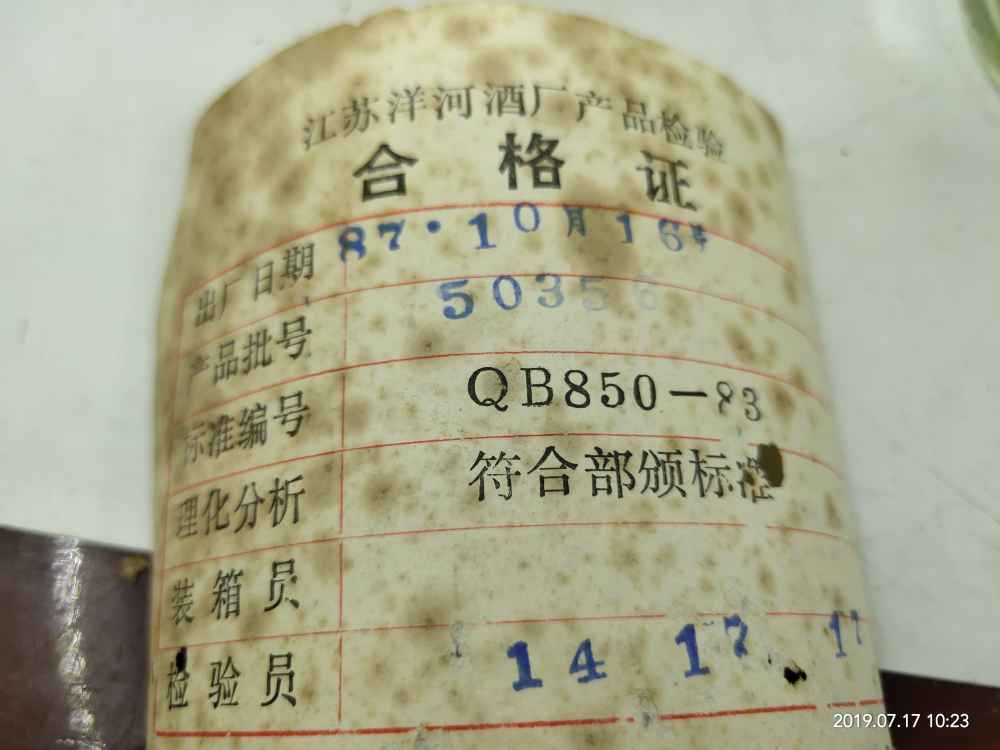 江苏洋河酒厂产品检验
合格证
出厂日期 87·10月16
产品批号 50356
标准编号 QB850-83
理化分析 符合部颁标准
装箱员
检验员 14 17 17
2019.07.17 10:23